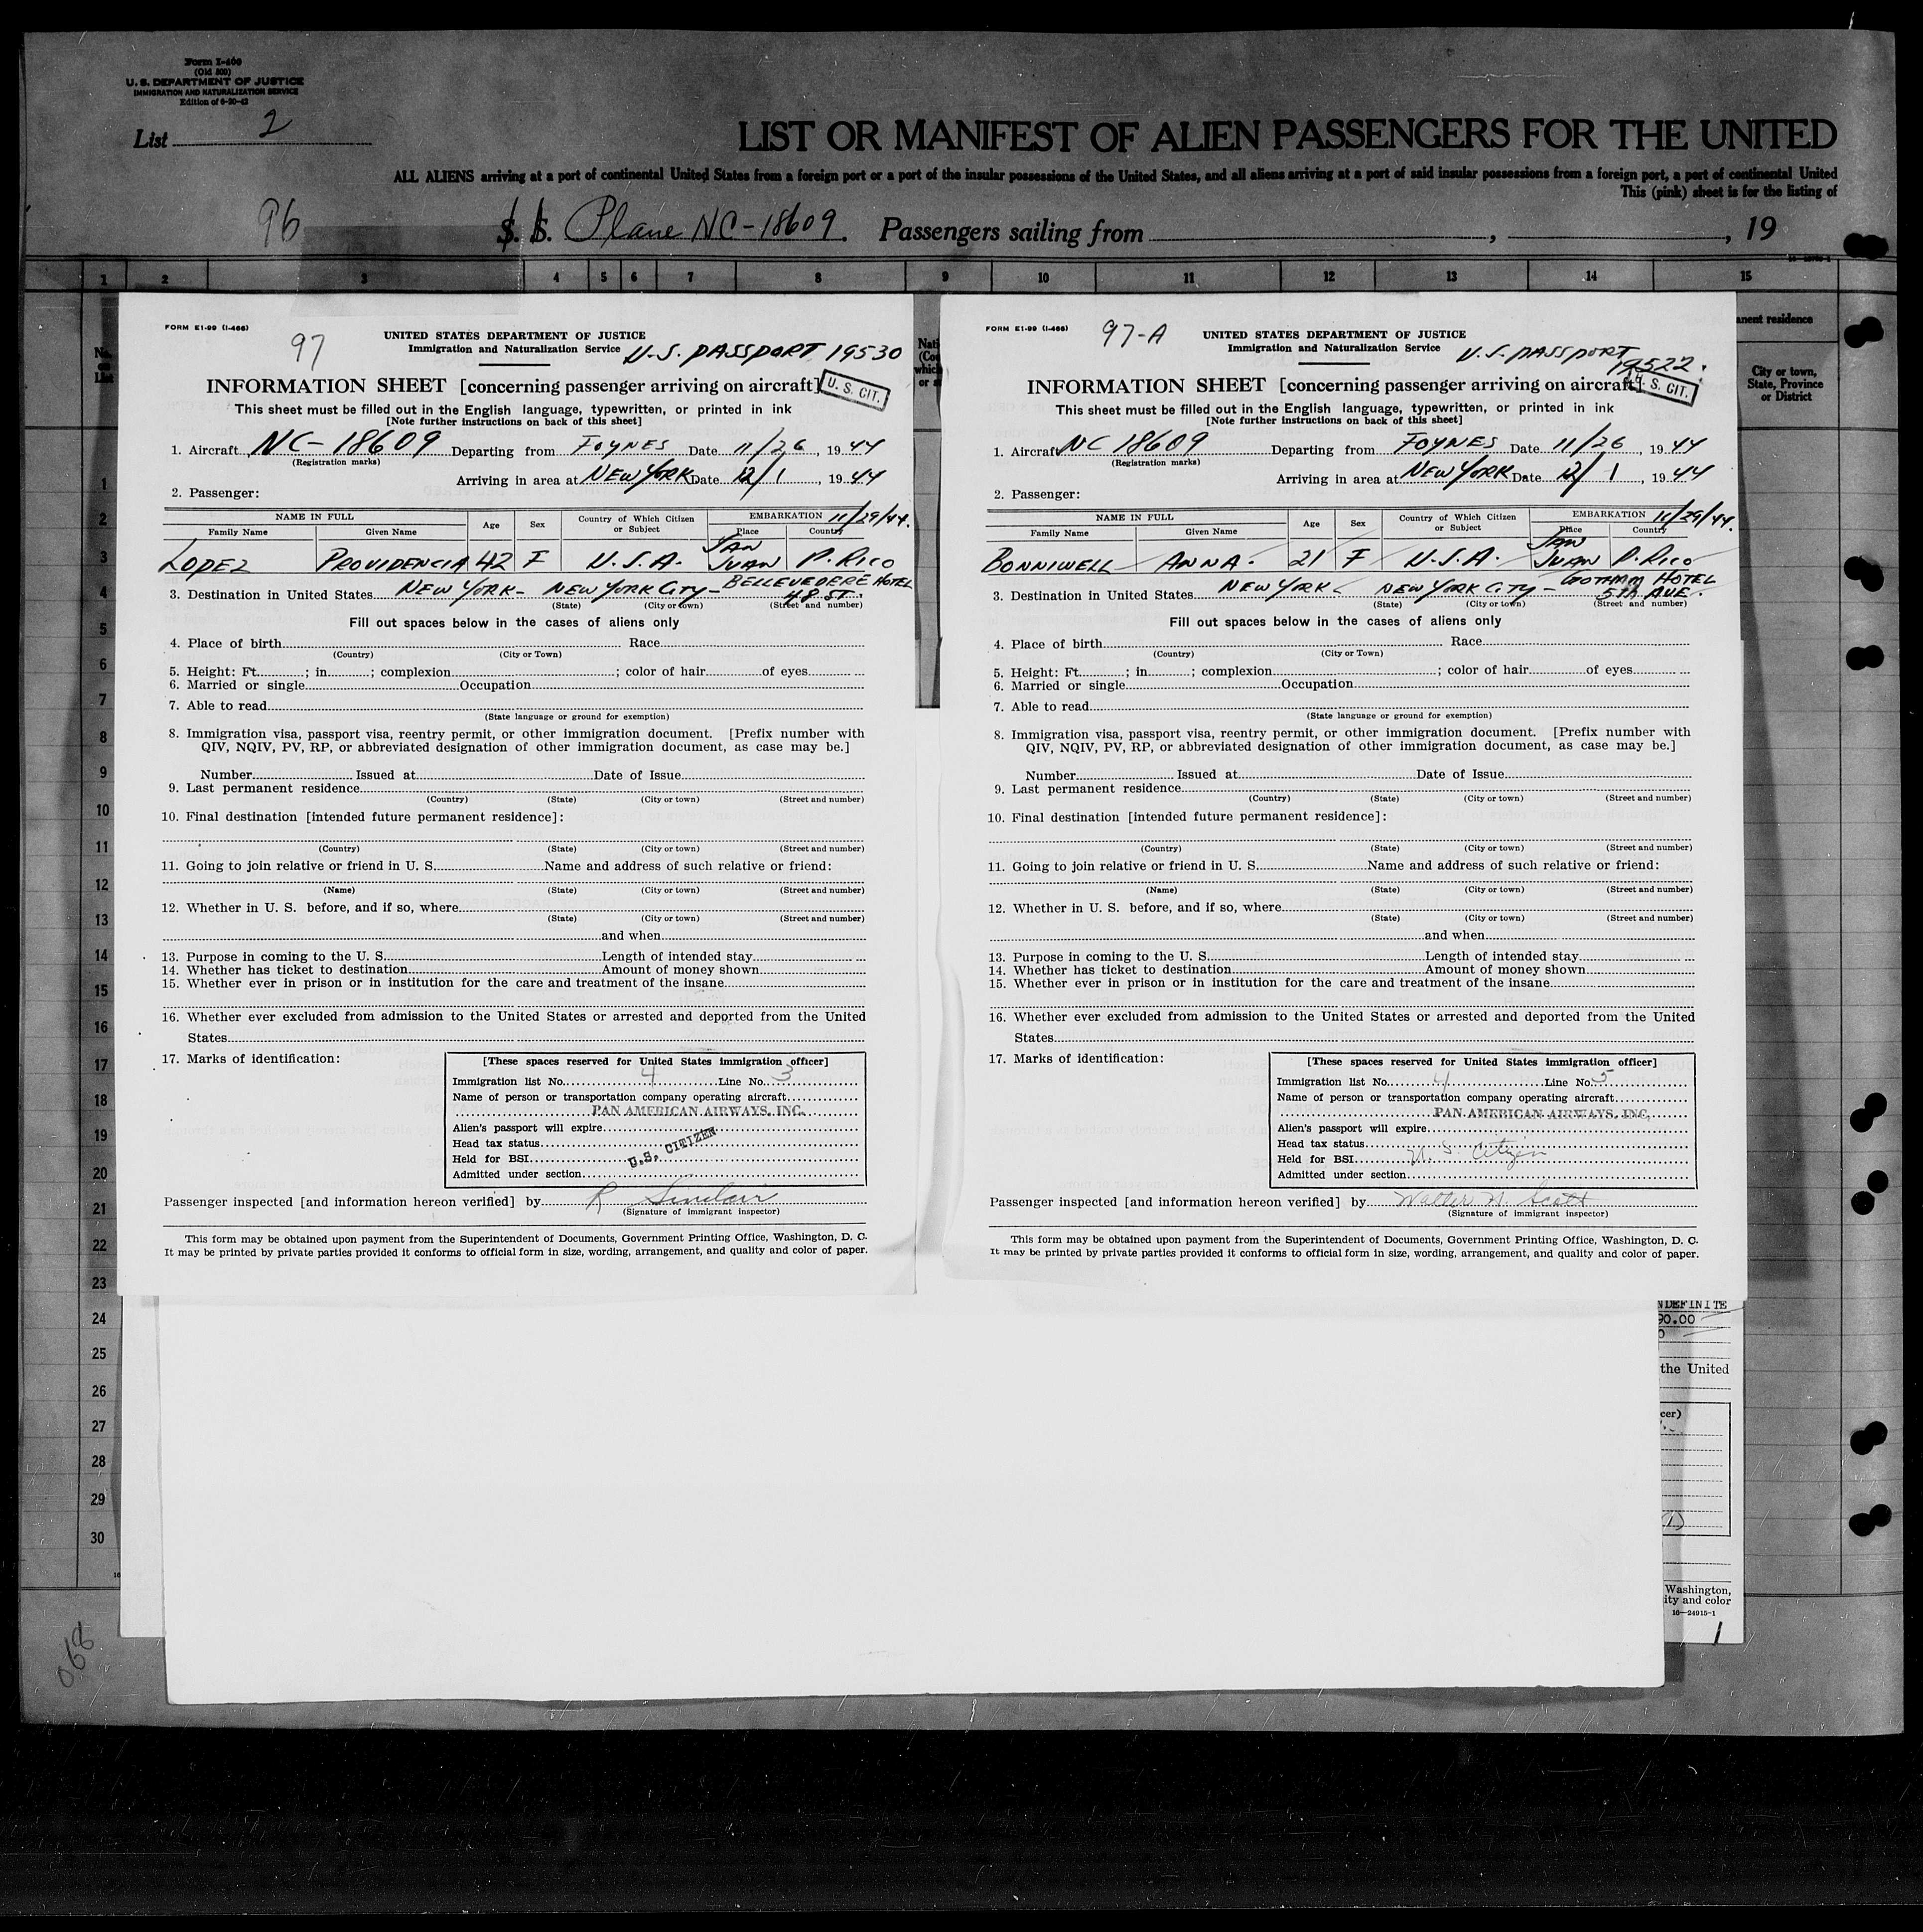 Form I-400
(Old 500)
U. S. DEPARTMENT OF JUSTICE
IMMIGRATION AND NATURALIZATION SERVICE
Edition of 6-20-42
List 2
LIST OR MANIFEST OF ALIEN PASSENGERS FOR THE UNITED
ALL ALIENS arriving at a port of continental United States from a foreign port or a port of the insular possessions of the United States, and all aliens arriving at a port of said insular possessions from a foreign port, a port of continental United
This (pink) sheet is for the listing of
96 S. S. Plane NC-18609. Passengers sailing from , , 19
1 2 3 4 5 6 7 8 9 10 11 12 13 14 15
FORM E1-99 (I-466)
97
UNITED STATES DEPARTMENT OF JUSTICE
Immigration and Naturalization Service U.S. PASSPORT 19530
INFORMATION SHEET [concerning passenger arriving on aircraft] U. S. CIT.
This sheet must be filled out in the English language, typewritten, or printed in ink
[Note further instructions on back of this sheet]
1. Aircraft NC-18609 Departing from FOYNES Date 11/26, 1944
(Registration marks)
Arriving in area at NEW YORK Date 12/1, 1944
2. Passenger:
NAME IN FULL Age Sex Country of Which Citizen or Subject EMBARKATION 11/29/44.
Family Name Given Name Place Country
LOPEZ PROVIDENCIA 42 F U.S.A. SAN JUAN P. RICO
3. Destination in United States NEW YORK - NEW YORK CITY - BELLEVEDERE HOTEL 48 ST.
(State) (City or town) (Street and number)
Fill out spaces below in the cases of aliens only
4. Place of birth Race
(Country) (City or Town)
5. Height: Ft. ; in. ; complexion ; color of hair of eyes
6. Married or single Occupation
7. Able to read
(State language or ground for exemption)
8. Immigration visa, passport visa, reentry permit, or other immigration document. [Prefix number with
QIV, NQIV, PV, RP, or abbreviated designation of other immigration document, as case may be.]
Number Issued at Date of Issue
9. Last permanent residence
(Country) (State) (City or town) (Street and number)
10. Final destination [intended future permanent residence]:
(Country) (State) (City or town) (Street and number)
11. Going to join relative or friend in U. S. Name and address of such relative or friend:
(Name) (State) (City or town) (Street and number)
12. Whether in U. S. before, and if so, where
(State) (City or town) (Street and number)
and when
13. Purpose in coming to the U. S. Length of intended stay
14. Whether has ticket to destination Amount of money shown
15. Whether ever in prison or in institution for the care and treatment of the insane
16. Whether ever excluded from admission to the United States or arrested and deported from the United
States
17. Marks of identification:
[These spaces reserved for United States immigration officer]
Immigration list No. 4 Line No. 3
Name of person or transportation company operating aircraft
PAN AMERICAN AIRWAYS, INC.
Alien's passport will expire
Head tax status
Held for BSI U.S. CITIZEN
Admitted under section
Passenger inspected [and information hereon verified] by R Sinclair
(Signature of immigrant inspector)
This form may be obtained upon payment from the Superintendent of Documents, Government Printing Office, Washington, D. C.
It may be printed by private parties provided it conforms to official form in size, wording, arrangement, and quality and color of paper.
FORM E1-99 (I-466)
97-A
UNITED STATES DEPARTMENT OF JUSTICE
Immigration and Naturalization Service U.S. PASSPORT
19522.
INFORMATION SHEET [concerning passenger arriving on aircraft] U. S. CIT.
This sheet must be filled out in the English language, typewritten, or printed in ink
[Note further instructions on back of this sheet]
1. Aircraft NC 18609 Departing from FOYNES Date 11/26, 1944
(Registration marks)
Arriving in area at NEW YORK Date 12/1, 1944
2. Passenger:
NAME IN FULL Age Sex Country of Which Citizen or Subject EMBARKATION 11/29/44.
Family Name Given Name Place Country
BONNIWELL ANNA. 21 F U.S.A. SAN JUAN P. RICO
3. Destination in United States NEW YORK NEW YORK CITY - GOTHAM HOTEL 5TH AVE.
(State) (City or town) (Street and number)
Fill out spaces below in the cases of aliens only
4. Place of birth Race
(Country) (City or Town)
5. Height: Ft. ; in. ; complexion ; color of hair of eyes
6. Married or single Occupation
7. Able to read
(State language or ground for exemption)
8. Immigration visa, passport visa, reentry permit, or other immigration document. [Prefix number with
QIV, NQIV, PV, RP, or abbreviated designation of other immigration document, as case may be.]
Number Issued at Date of Issue
9. Last permanent residence
(Country) (State) (City or town) (Street and number)
10. Final destination [intended future permanent residence]:
(Country) (State) (City or town) (Street and number)
11. Going to join relative or friend in U. S. Name and address of such relative or friend:
(Name) (State) (City or town) (Street and number)
12. Whether in U. S. before, and if so, where
(State) (City or town) (Street and number)
and when
13. Purpose in coming to the U. S. Length of intended stay
14. Whether has ticket to destination Amount of money shown
15. Whether ever in prison or in institution for the care and treatment of the insane
16. Whether ever excluded from admission to the United States or arrested and deported from the United
States
17. Marks of identification:
[These spaces reserved for United States immigration officer]
Immigration list No. 4 Line No. 5
Name of person or transportation company operating aircraft
PAN AMERICAN AIRWAYS, INC.
Alien's passport will expire
Head tax status
Held for BSI U. S. Citizen
Admitted under section
Passenger inspected [and information hereon verified] by Walter H. Scott
(Signature of immigrant inspector)
This form may be obtained upon payment from the Superintendent of Documents, Government Printing Office, Washington, D. C.
It may be printed by private parties provided it conforms to official form in size, wording, arrangement, and quality and color of paper.
anent residence
City or town,
State, Province
or District
1
2
3
4
5
6
7
8
9
10
11
12
13
14
15
16
17
18
19
20
21
22
23
24
25
26
27
28
29
30
NDEFINITE
90.00
the United
cer)
Washington,
ity and color
16—24915-1
068